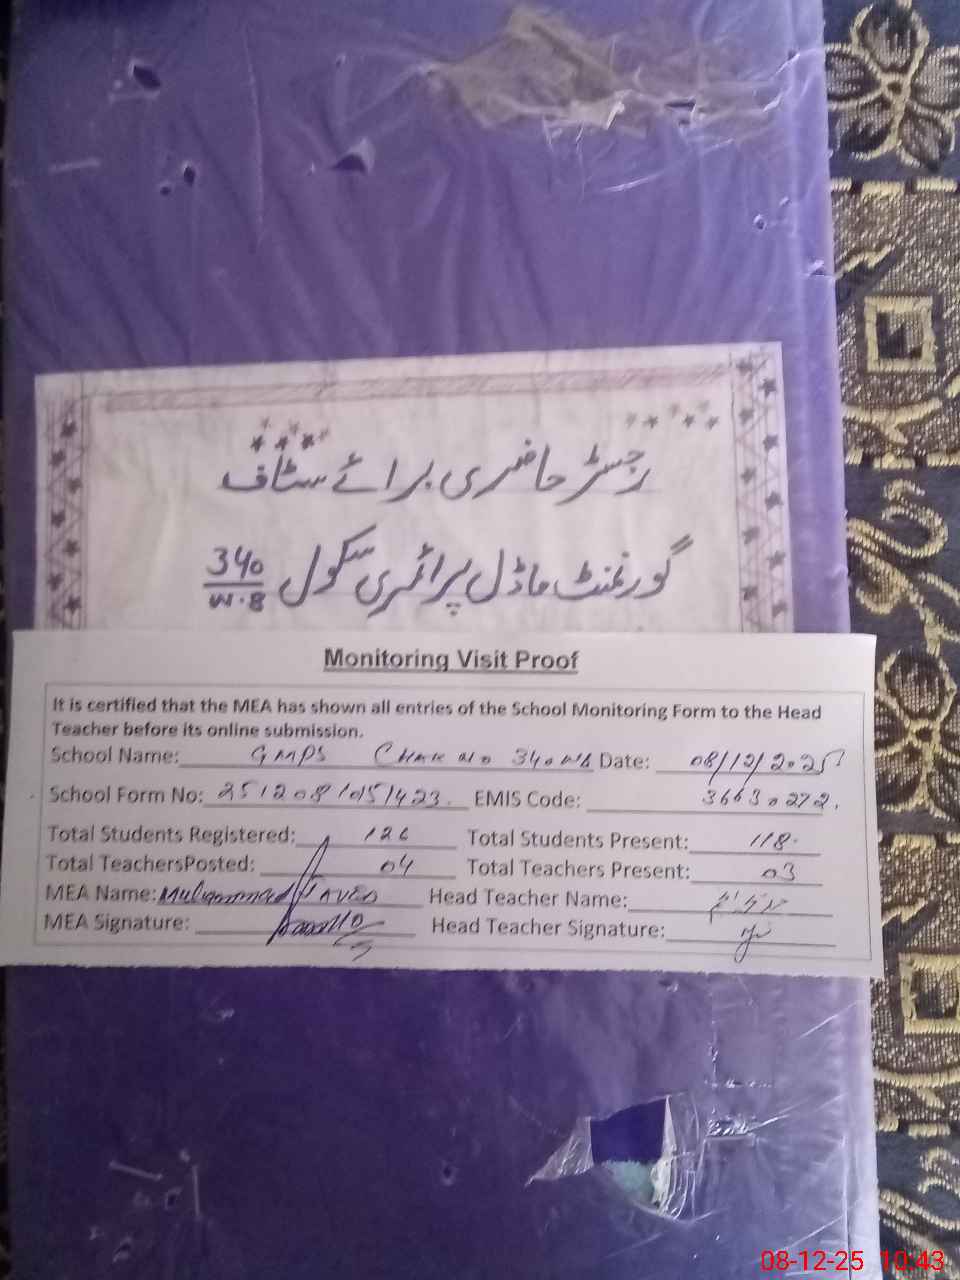 رجسٹر حاضری برائے سٹاف
گورنمنٹ ماڈل پرائمری سکول 340/W.B
Monitoring Visit Proof
It is certified that the MEA has shown all entries of the School Monitoring Form to the Head
Teacher before its online submission.
School Name: GMPS Chak No 340 WB Date: 08/12/2025
School Form No: EMIS Code: 36630272.
Total Students Registered: 126 Total Students Present: 118.
Total TeachersPosted: 04 Total Teachers Present: 03
MEA Name: Muhammad Javed Head Teacher Name:
MEA Signature: Head Teacher Signature:
08-12-25 10:43